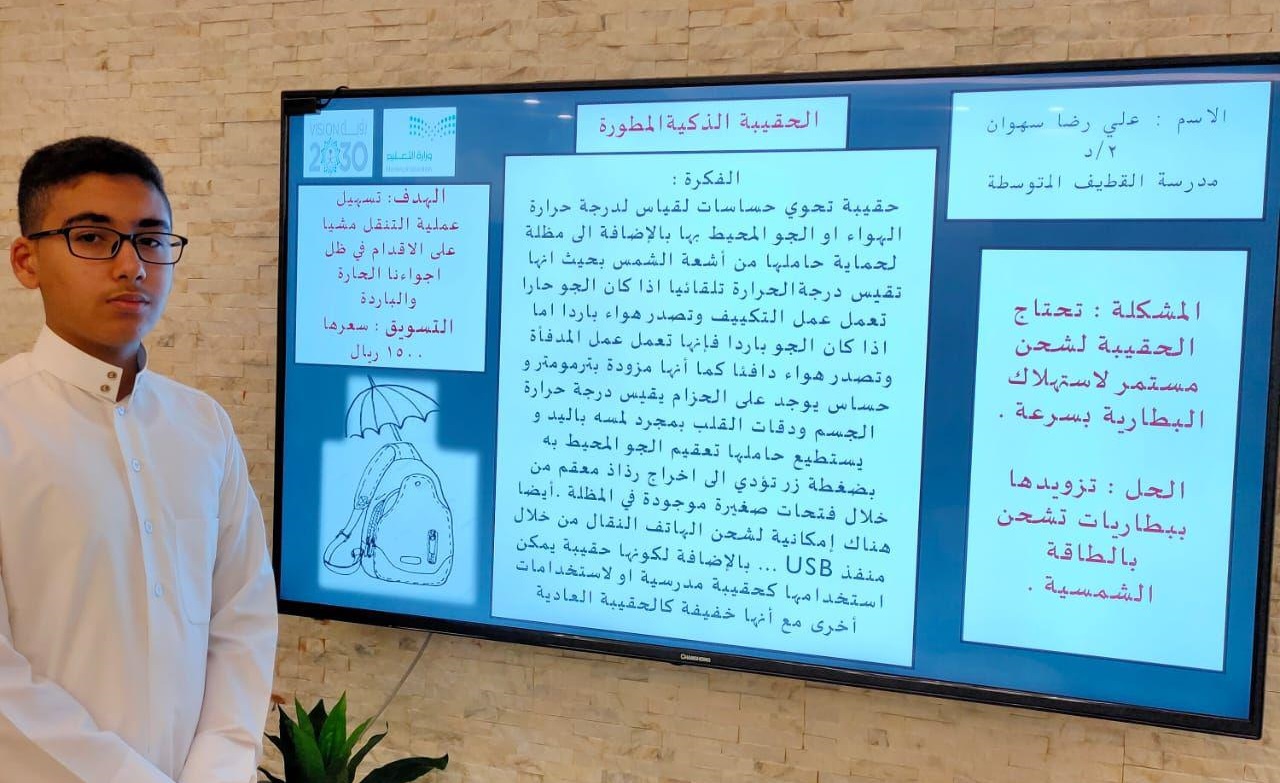 الحقيبة الذكية المطورة
الاسم : علي رضا سهوان
٢/د
مدرسة القطيف المتوسطة
المشكلة : تحتاج
الحقيبة لشحن
مستمر لاستهلاك
البطارية بسرعة .
الحل : تزويدها
ببطاريات تشحن
بالطاقة
الشمسية .
الفكرة :
حقيبة تحوي حساسات لقياس لدرجة حرارة
الهواء او الجو المحيط بها بالإضافة الى مظلة
لحماية حاملها من أشعة الشمس بحيث انها
تقيس درجة الحرارة تلقائيا اذا كان الجو حارا
تعمل عمل التكييف وتصدر هواء باردا اما
اذا كان الجو باردا فإنها تعمل عمل المدفأة
وتصدر هواء دافئا كما أنها مزودة بترمومتر و
حساس يوجد على الحزام يقيس درجة حرارة
الجسم ودقات القلب بمجرد لمسه باليد و
يستطيع حاملها تعقيم الجو المحيط به
بضغطة زر تؤدي الى اخراج رذاذ معقم من
خلال فتحات صغيرة موجودة في المظلة .أيضا
هناك إمكانية لشحن الهاتف النقال من خلال
منفذ USB ... بالإضافة لكونها حقيبة يمكن
استخدامها كحقيبة مدرسية او لاستخدامات
أخرى مع أنها خفيفة كالحقيبة العادية
VISION رؤية
2030
وزارة التعليم
Ministry of Education
الهدف: تسهيل
عملية التنقل مشيا
على الاقدام في ظل
اجواءنا الحارة
والباردة
التسويق : سعرها
١٥٠٠ ريال
CHANGHONG